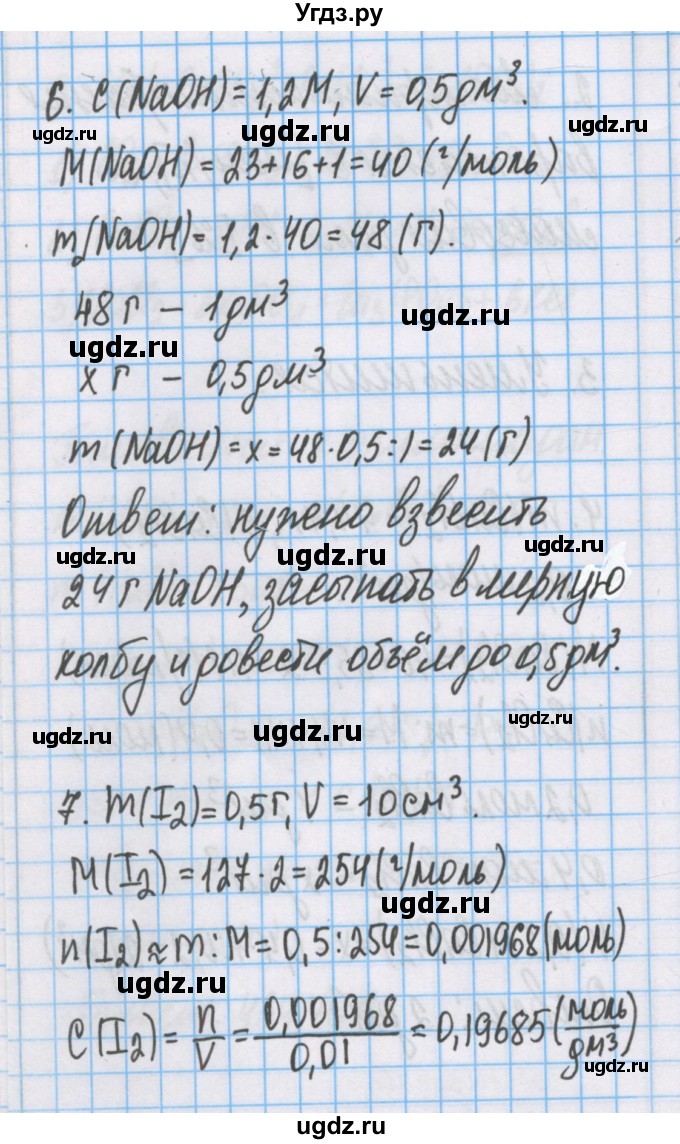 Угдз.ру
6. C(NaOH)=1,2М, V=0,5дм³.
ugdz.ru ugdz.ru
M(NaOH)=23+16+1=40(г/моль)
m₂(NaOH)=1,2·40=48(г).
48г – 1дм³
ugdz.ru ugdz.ru
xг – 0,5дм³
m(NaOH)=x=48·0,5:1=24(г)
Ответ: нужно взвесить
ugdz.ru ugdz.ru ugdz.ru
24г NaOH, засыпать в мерную
колбу и довести объём до 0,5дм³.
ugdz.ru ugdz.ru ugdz.ru
7. m(I₂)=0,5г, V=10см³.
M(I₂)=127·2=254(г/моль)
ugdz.ru
n(I₂)≈m:M=0,5:254=0,001968(моль)
ugdz.ru ugdz.ru
C(I₂)=n/V=0,001968/0,01=0,19685(моль/дм³)
ugdz.ru ugdz.ru ugdz.ru